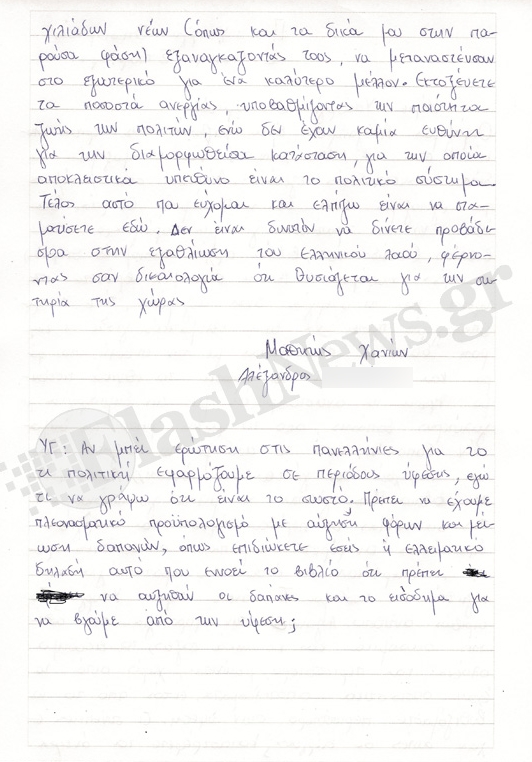 χιλιάδων νέων (όπως και τα δικά μου στην πα-
ρούσα φάση) εξαναγκάζοντάς τους, να μεταναστεύσουν
στο εξωτερικό για ένα καλύτερο μέλλον. Εκτοξεύετε
τα ποσοστά ανεργίας, υποβαθμίζοντας την ποιότητα
ζωής των πολιτών, ενώ δεν έχουν καμία ευθύνη
για την διαμορφωθείσα κατάσταση, για την οποία
αποκλειστικά υπεύθυνο είναι το πολιτικό σύστημα.
Τέλος αυτό που εύχομαι και ελπίζω είναι να στα-
ματήσετε εδώ. Δεν είναι δυνατόν να δίνετε προβάδι-
σμα στην εξαθλίωση του ελληνικού λαού, φέρνο-
ντας σαν δικαιολογία ότι θυσιάζεται για την σω-
τηρία της χώρας
Μαθητής Χανίων
Αλέξανδρος
FlashNews.gr
ΥΓ: Αν μπει ερώτηση στις πανελλήνιες για το
τι πολιτική εφαρμόζουμε σε περιόδους ύφεσης, εγώ
τι να γράψω ότι είναι το σωστό. Πρέπει να έχουμε
πλεονασματικό προϋπολογισμό με αύξηση φόρων και μεί-
ωση δαπανών, όπως επιδιώκετε εσείς ή ελλειματικό
δηλαδή αυτό που εννοεί το βιβλίο ότι πρέπει
να αυξηθούν οι δαπάνες και το εισόδημα για
να βγούμε από την ύφεση;